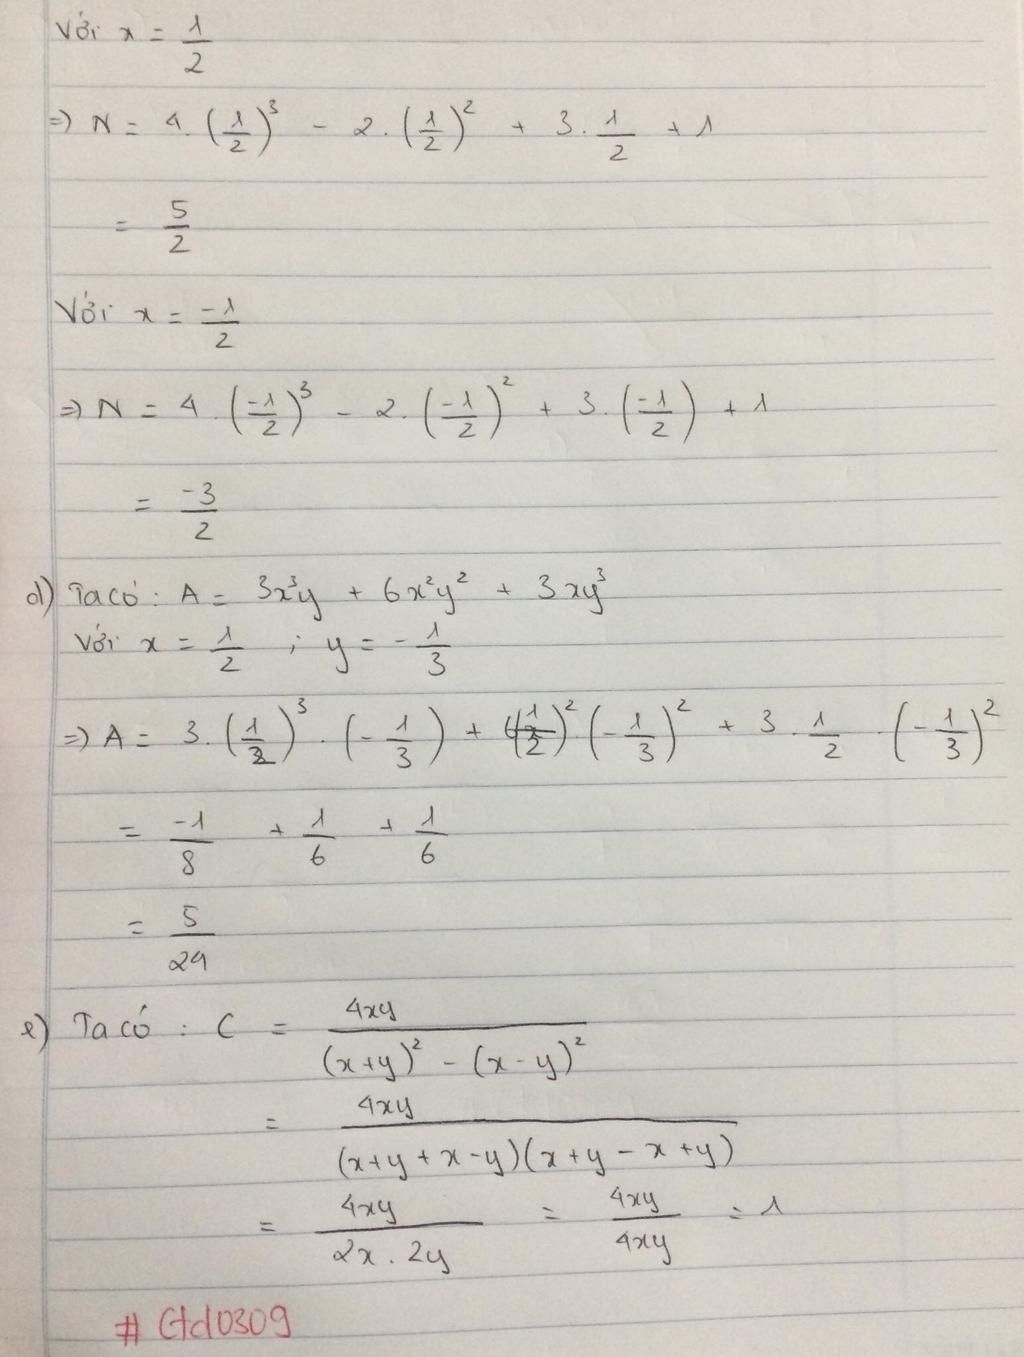 Với x = 1/2
=> N = 4.(1/2)³ - 2.(1/2)² + 3.1/2 + 1
= 5/2
Với x = -1/2
=> N = 4.(-1/2)³ - 2.(-1/2)² + 3.(-1/2) + 1
= -3/2
d) Ta có: A = 3x³y + 6x²y² + 3xy³
Với x = 1/2 ; y = -1/3
=> A = 3.(1/2)³.(-1/3) + (1/2)².(-1/3)² + 3.1/2.(-1/3)²
= -1/8 + 1/6 + 1/6
= 5/24
e) Ta có: C = 4xy/((x+y)² - (x-y)²)
= 4xy/((x+y+x-y)(x+y-x+y))
= 4xy/(2x.2y) = 4xy/4xy = 1